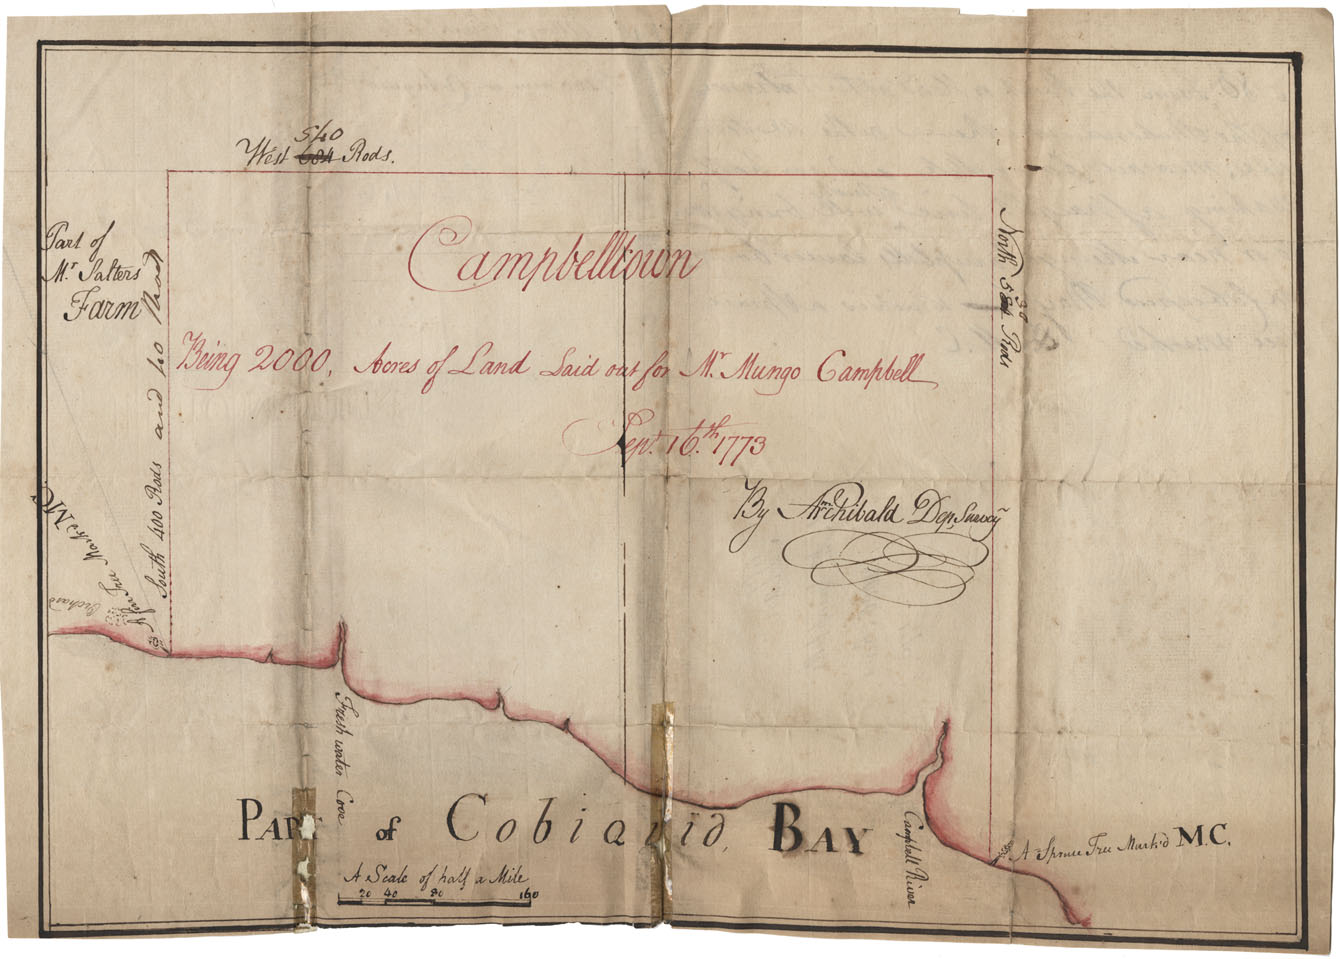 540
West 684 Rods.
Part of
Mr Salters
Farm
Campbelltown
Being 2000, Acres of Land Laid out for Mr. Mungo Campbell
Sept. 16.th 1773
By Wm. Archibald Dep, Survey
North 584 Rods
30
South 400 Rods and 40 Road
Tree Mark'd M.C.
Orchard
Fresh water Cove
Part of Cobiquid, Bay
Campbell River
A Spruce Tree Mark'd M.C.
A Scale of half a Mile
20 40 80 160